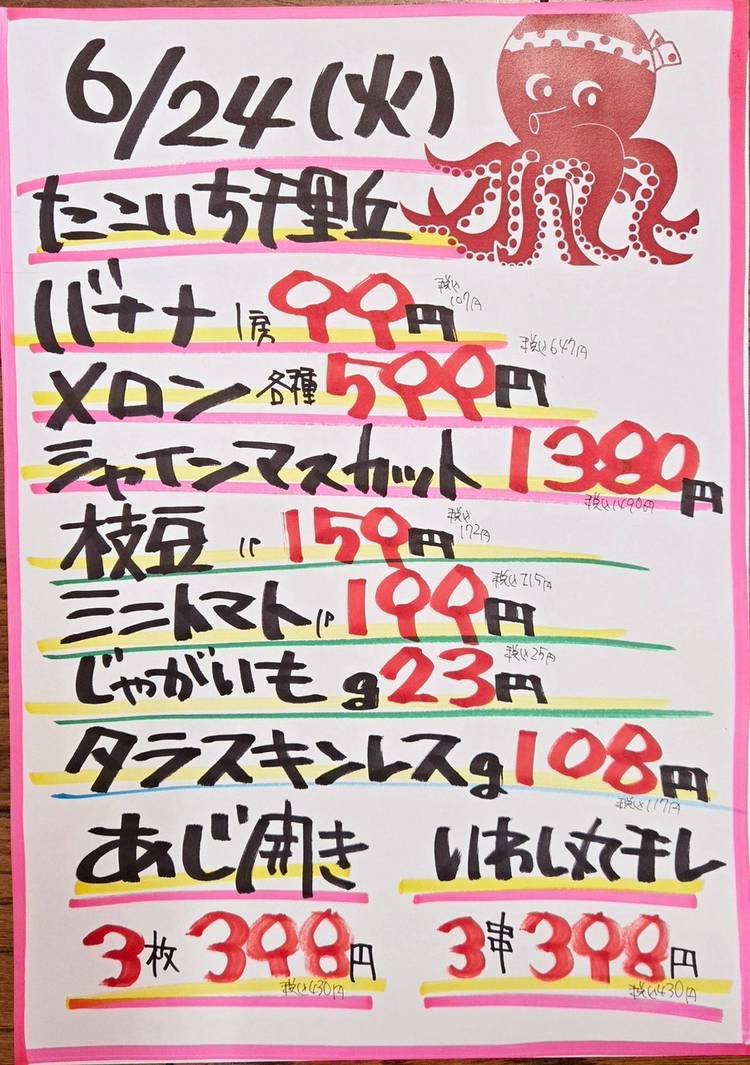 6/24(火)
たこいち千里丘
バナナ1房99円 税込107円
メロン各種599円 税込647円
シャインマスカット1380円 税込1490円
枝豆1P159円 税込172円
ミニトマト1P199円 税込215円
じゃがいもg23円 税込25円
タラスキンレスg108円 税込117円
あじ開き いわし丸干し
3枚398円 税込430円 3串398円 税込430円